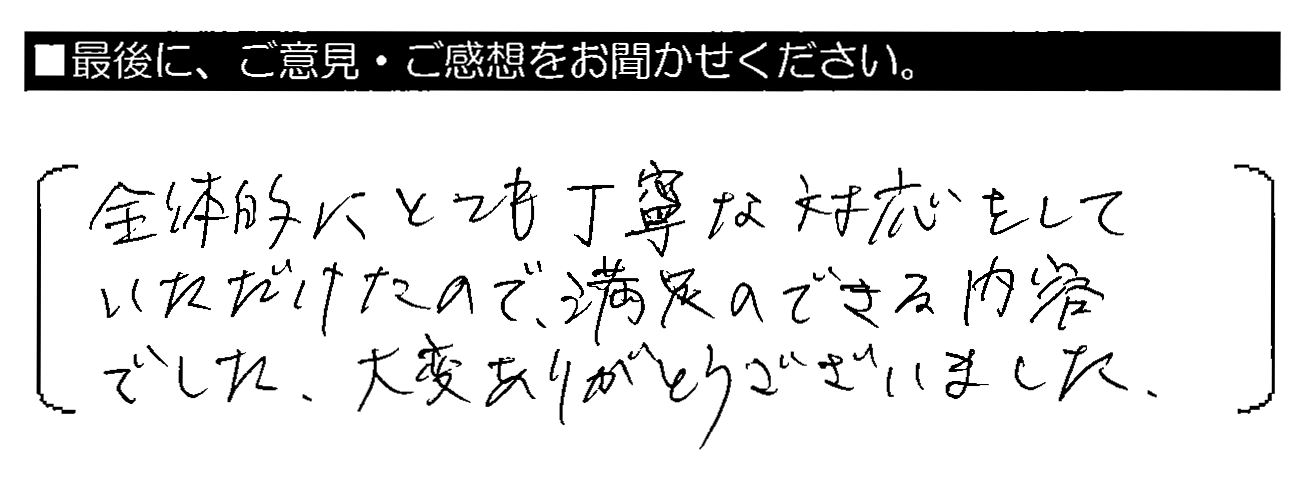 ■最後に、ご意見・ご感想をお聞かせください。
全体的にとても丁寧な対応をして
いただけたので、満足のできる内容
でした、大変ありがとうございました、